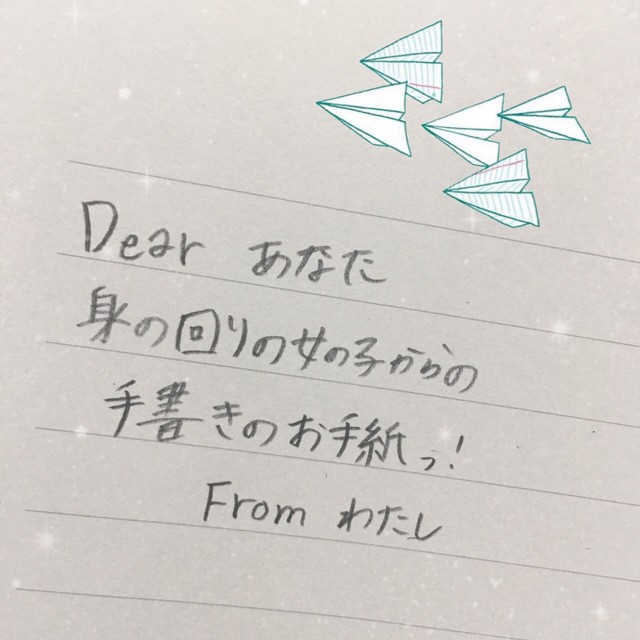 Dear あなた
身の回りの女の子からの
手書きのお手紙っ!
From わたし